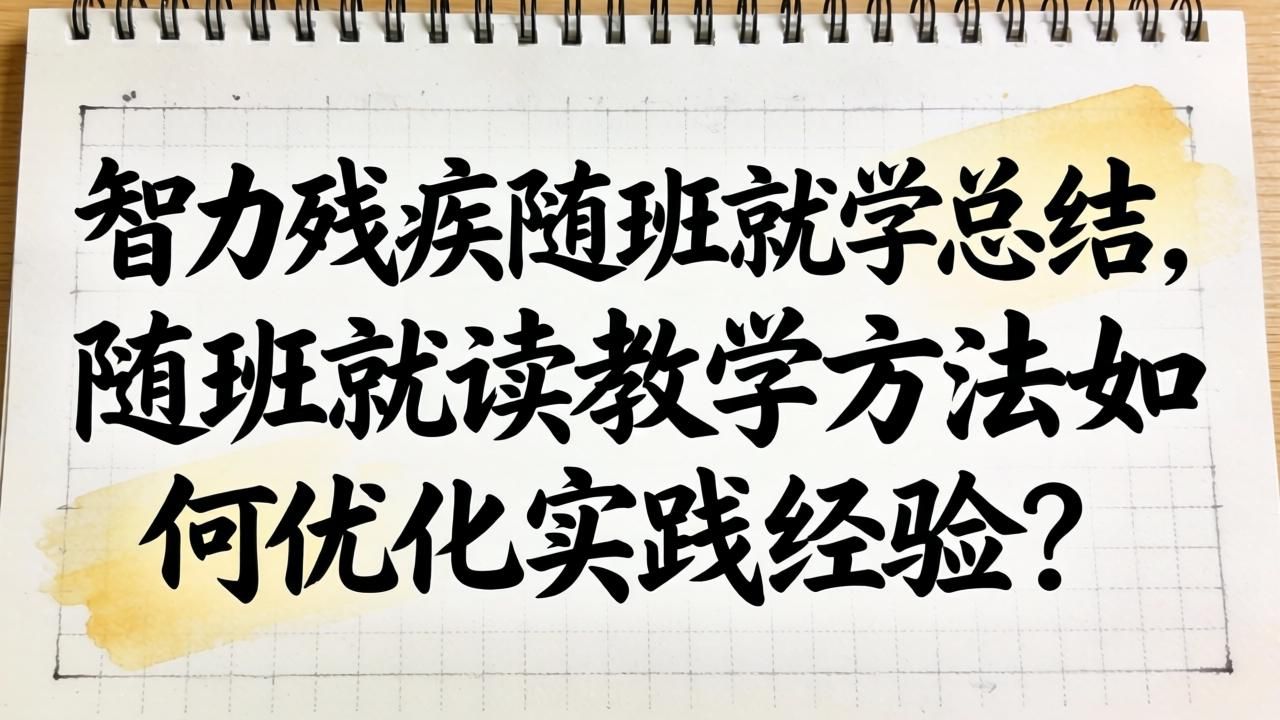 智力残疾随班就学总结，
随班就读教学方法如
何优化实践经验？